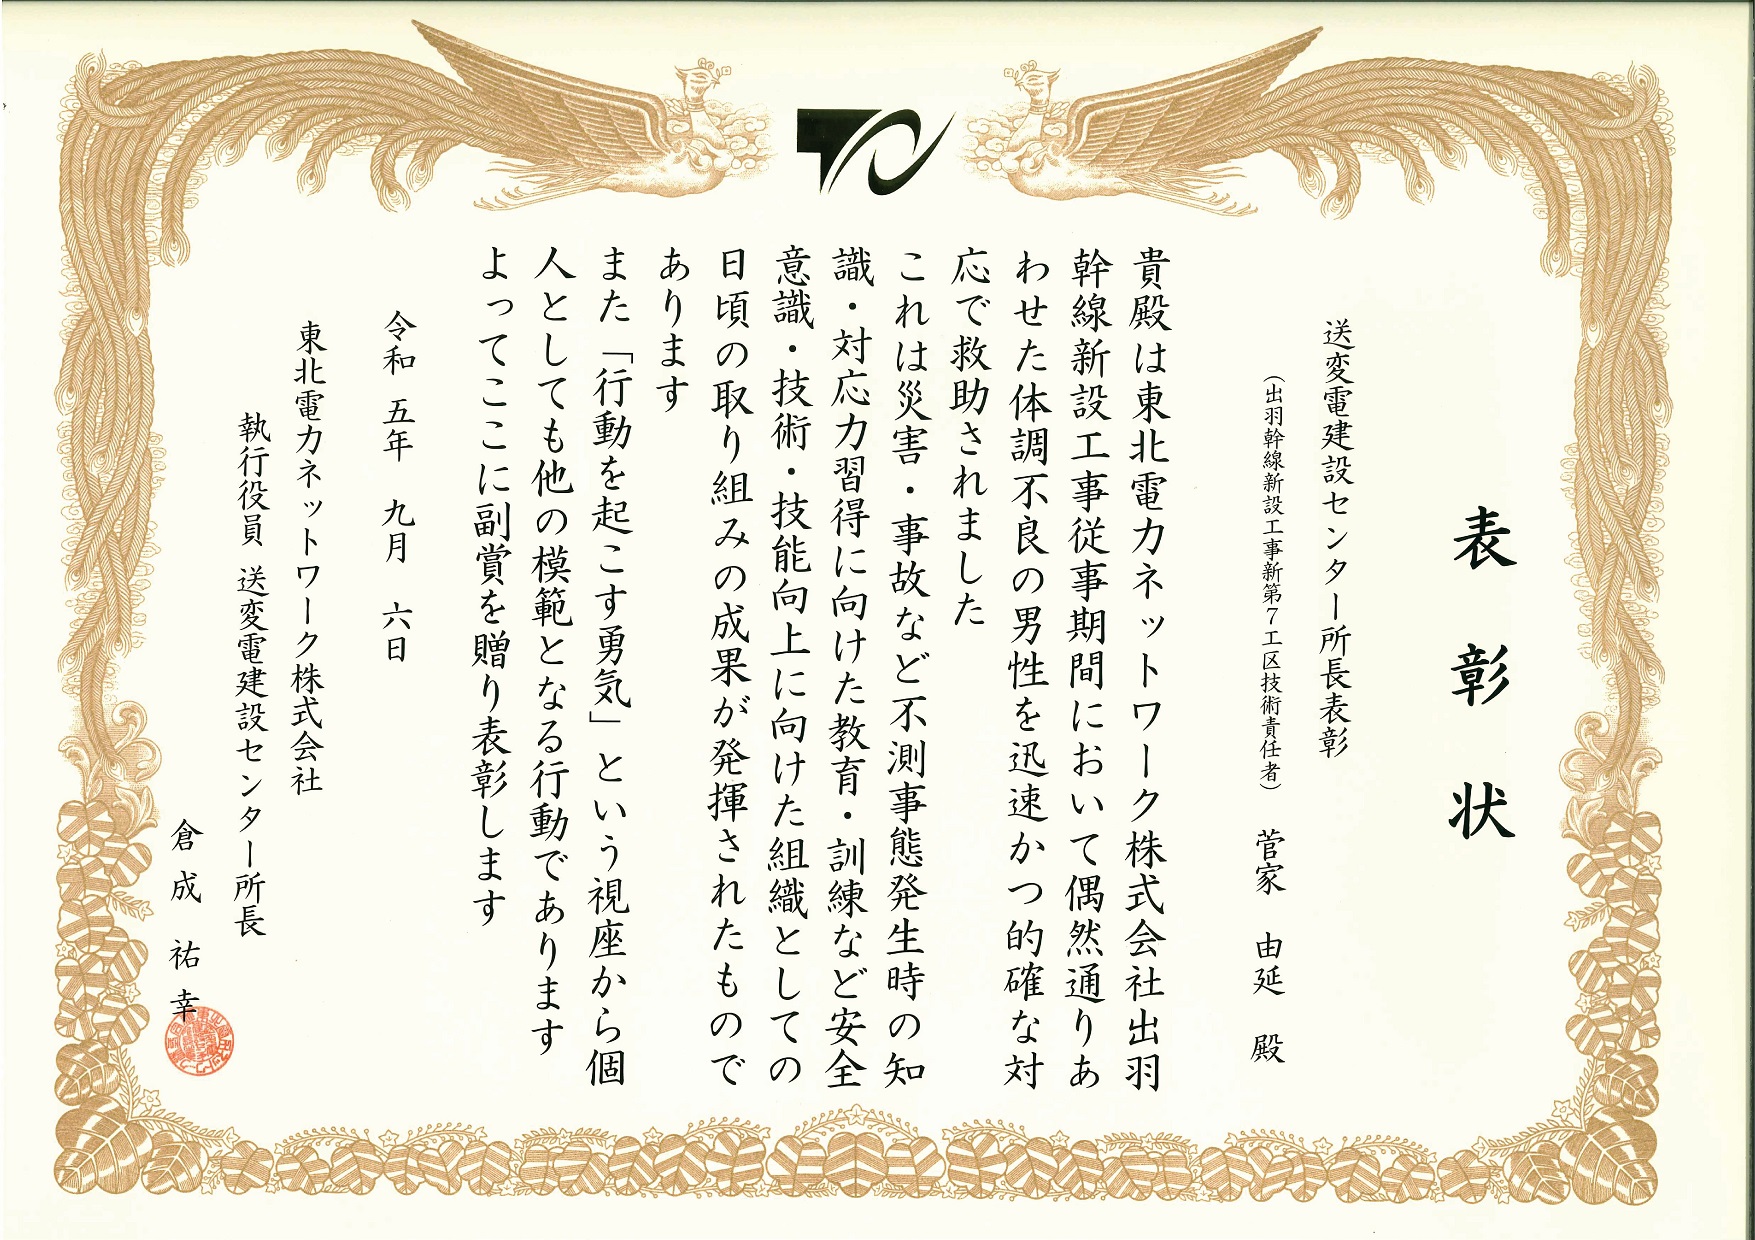 表彰状
送変電建設センター所長表彰
（出羽幹線新設工事新第７工区技術責任者）　菅家　由延　殿
貴殿は東北電力ネットワーク株式会社出羽
幹線新設工事従事期間において偶然通りあ
わせた体調不良の男性を迅速かつ的確な対
応で救助されました
これは災害・事故など不測事態発生時の知
識・対応力習得に向けた教育・訓練など安全
意識・技術・技能向上に向けた組織としての
日頃の取り組みの成果が発揮されたもので
あります
また「行動を起こす勇気」という視座から個
人としても他の模範となる行動であります
よってここに副賞を贈り表彰します
令和　五年　九月　六日
東北電力ネットワーク株式会社
執行役員　送変電建設センター所長
倉成　祐幸